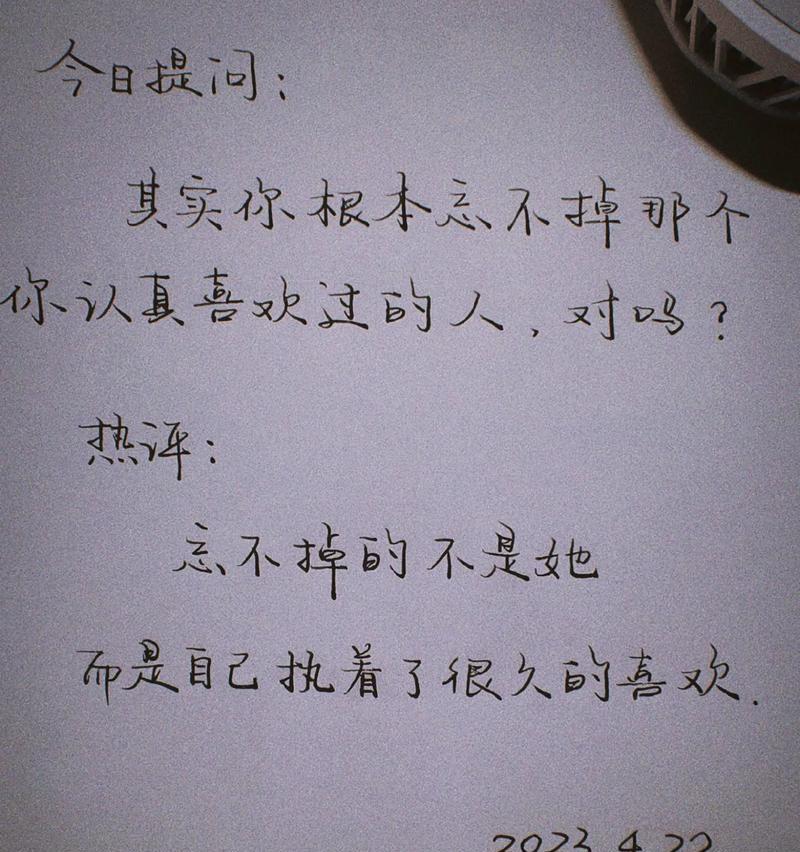 今日提问：
其实你根本忘不掉那个
你认真喜欢过的人，对吗？
热评：
忘不掉的不是她
而是自己执着了很久的喜欢.
2023.4.22